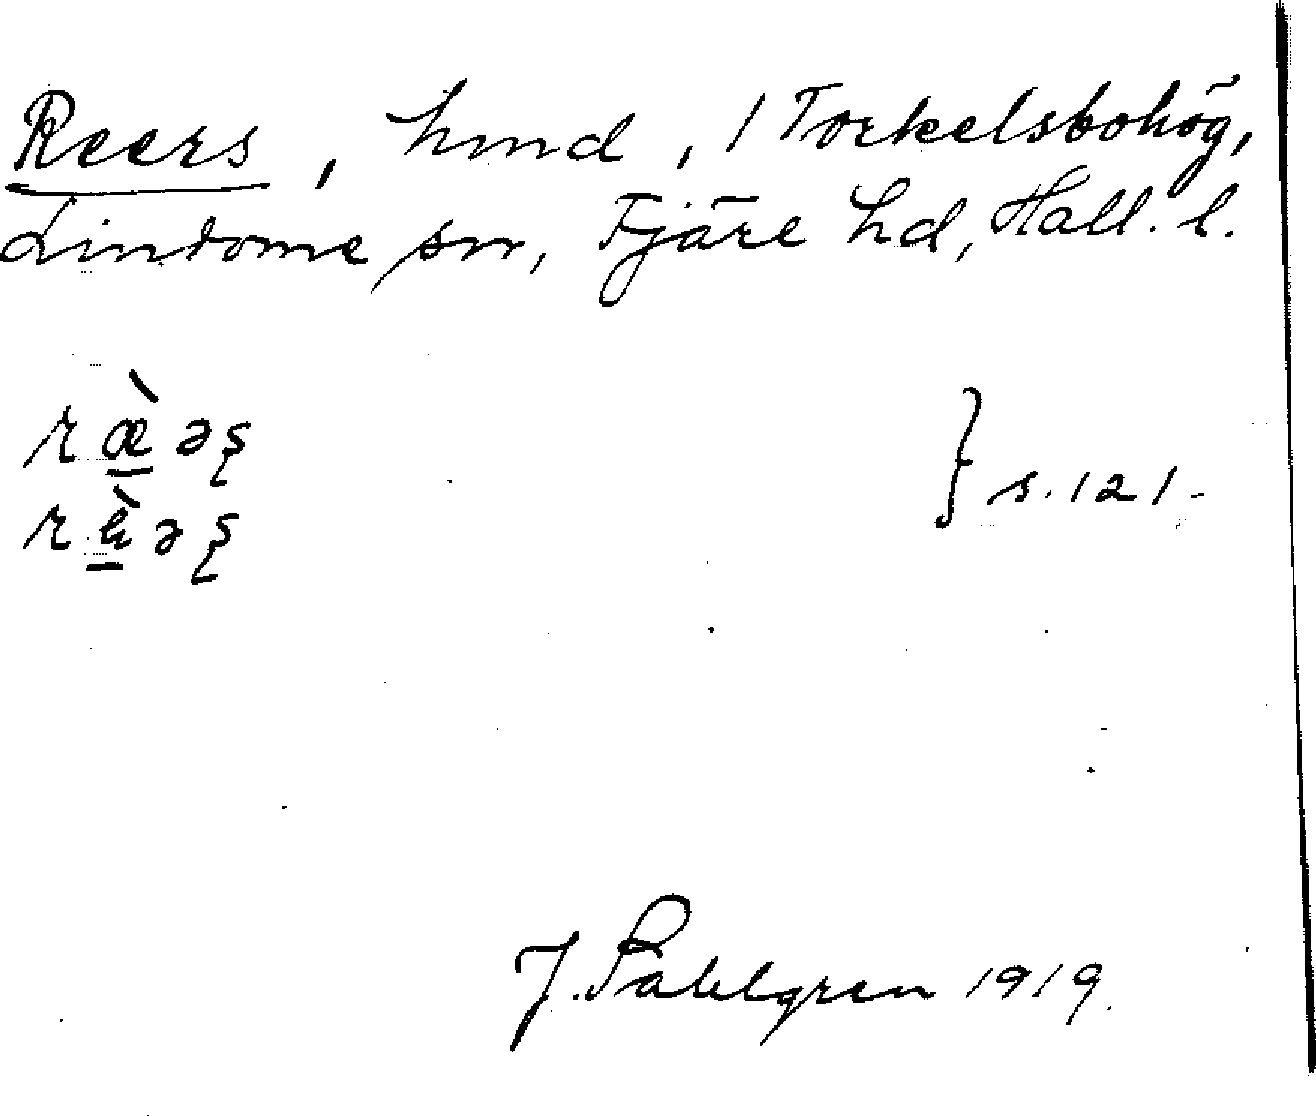 Reers, hmd, 1 Torkelsbohög,
Lindome sn, Fjäre hd, Hall. l.
ræ̀əş } s. 121.
əş
J. Pahlgren 1919.